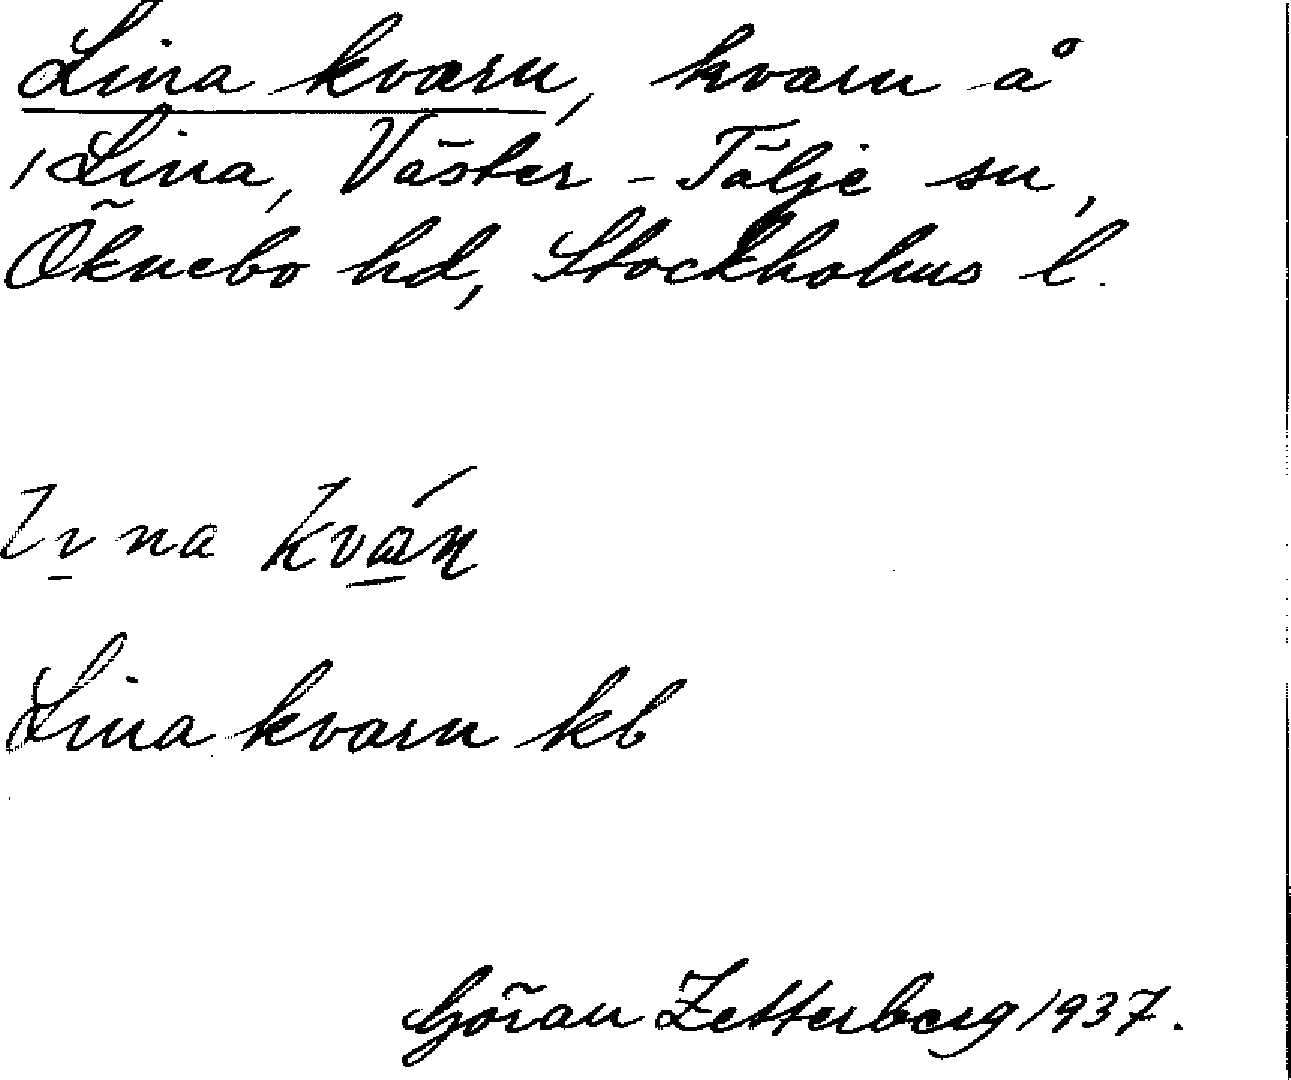 Lina kvarn, kvarn å
1 Lina, Väster-Tälje sn,
Öknebo hd, Stockholms l.
Lina kvarn kb
Göran Zetterberg 1937.